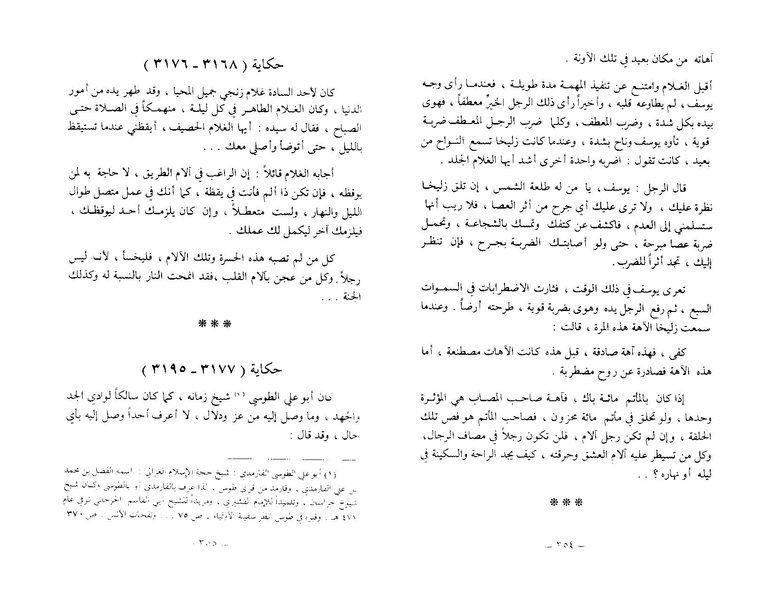 آهاته من مكان بعيد في تلك الآونة .
أقبل الغلام وامتنع عن تنفيذ المهمة مدة طويلة ، فعندما رأى وجه
يوسف ، لم يطاوعه قلبه ، وأخيراً رأى ذلك الرجل الخيّر معطفاً ، فهوى
بيده بكل شدة ، وضرب المعطف ، وكلما ضرب الرجل المعطف ضربة
قوية ، تأوه يوسف وناح بشدة ، وعندما كانت زليخا تسمع النواح من
بعيد ، كانت تقول : اضربه واحدة أخرى أشد أيها الغلام الجلد .
قال الرجل : يوسف ، يا من له طلعة الشمس ، إن تلق زليخا
نظرة عليك ، ولا ترى عليك أي جرح من أثر العصا ، فلا ريب أنها
ستسلمني إلى العدم ، فاكشف عن كتفك وتمسك بالشجاعة ، وتحمل
ضربة عصا مبرحة ، حتى ولو أصابتك الضربة بجرح ، فإن تنظر
إليك ، تجد أثراً للضرب .
تعرى يوسف في ذلك الوقت ، فثارت الاضطرابات في السموات
السبع ، ثم رفع الرجل يده وهوى بضربة قوية ، طرحته أرضاً . وعندما
سمعت زليخا الآهة هذه المرة ، قالت :
كفى ، فهذه آهة صادقة ، قبل هذه كانت الآهات مصطنعة ، أما
هذه الآهة فصادرة عن روح مضطربة .
إذا كان بالمأتم مائة باك ، فآهة صاحب المصاب هي المؤثرة
وحدها ، ولو تحلق في مأتم مائة محزون ، فصاحب المأتم هو فص تلك
الحلقة ، وإن لم تكن رجل آلام ، فلن تكون رجلاً في مصاف الرجال ،
وكل من تسيطر عليه آلام العشق وحرقته ، كيف يجد الراحة والسكينة في
ليله أو نهاره ؟ . .
***
— ٣٥٤ —
حكاية ( ٣١٦٨ - ٣١٧٦ )
كان لأحد السادة غلام زنجي جميل المحيا ، وقد طهر يده من أمور
الدنيا ، وكان الغلام الطاهر في كل ليلة ، منهمكاً في الصلاة حتى
الصباح ، فقال له سيده : أيها الغلام الحصيف ، أيقظني عندما تستيقظ
بالليل ، حتى أتوضأ وأصلي معك . . .
أجابه الغلام قائلاً : إن الراغب في آلام الطريق ، لا حاجة به لمن
يوقظه ، فإن تكن ذا ألم فأنت في يقظة ، كما أنك في عمل متصل طوال
الليل والنهار ، ولست متعطلاً ، وإن كان يلزمك أحد ليوقظك ،
فيلزمك آخر ليكمل لك عملك .
كل من لم تصبه هذه الحسرة وتلك الآلام ، فليخسأ ، لأنه ليس
رجلاً . وكل من عجن بآلام القلب ، فقد انمحت النار بالنسبة له وكذلك
الجنة . . .
***
حكاية ( ٣١٧٧ - ٣١٩٥ )
كان أبو علي الطوسي (١) شيخ زمانه ، كما كان سالكاً لوادي الجد
والجهد ، وما وصل إليه من عز ودلال ، لا أعرف أحداً وصل إليه بأي
حال ، وقد قال :
(١) أبو علي الطوسي الفارمدي : شيخ حجة الإسلام الغزالي : اسمه الفضل بن محمد
بن علي الفارمدي ، وفارمد من قرى طوس ، لذا عرف بالفارمدي أو بالطوسي ، وكان شيخ
شيوخ خراسان ، وتلميذاً للإمام القشيري ، ومريداً للشيخ أبي القاسم الجرجاني توفي عام
٤٧١ هـ . وقبره في طوس انظر سفينة الأولياء ، ص ٧٥ . . . ونفحات الأنس . ص ٣٧٠